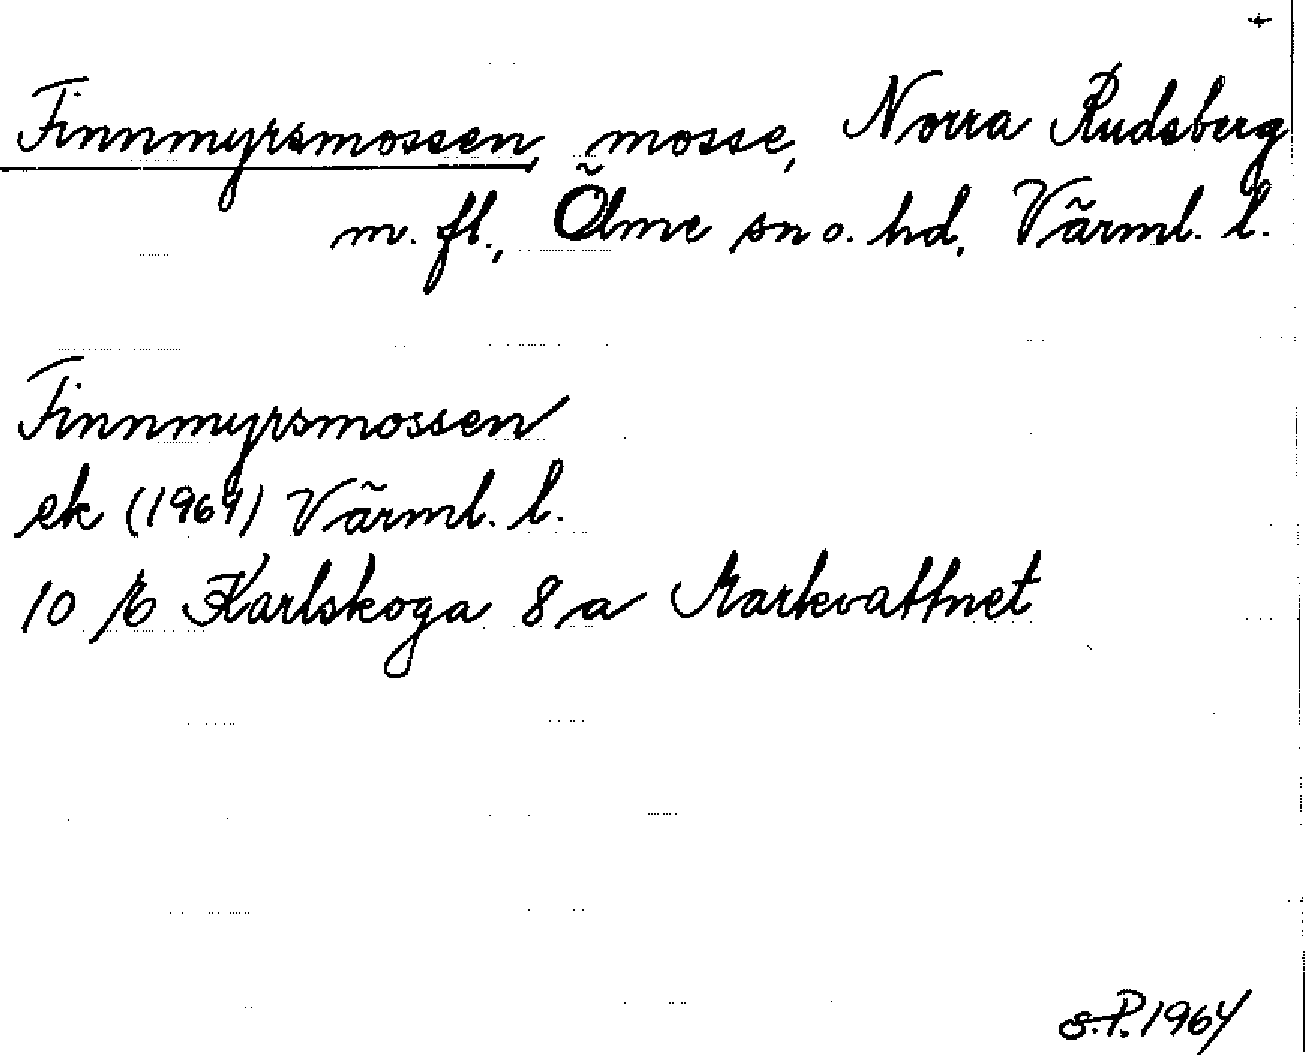 +
Finnmyrsmossen, mosse, Norra Rudsberg
m. fl., Ölme sn o. hd, Värml. l.
Finnmyrsmossen
ek (1964) Värml. l.
10 E Karlskoga 8 a Markvattnet
S.P. 1964